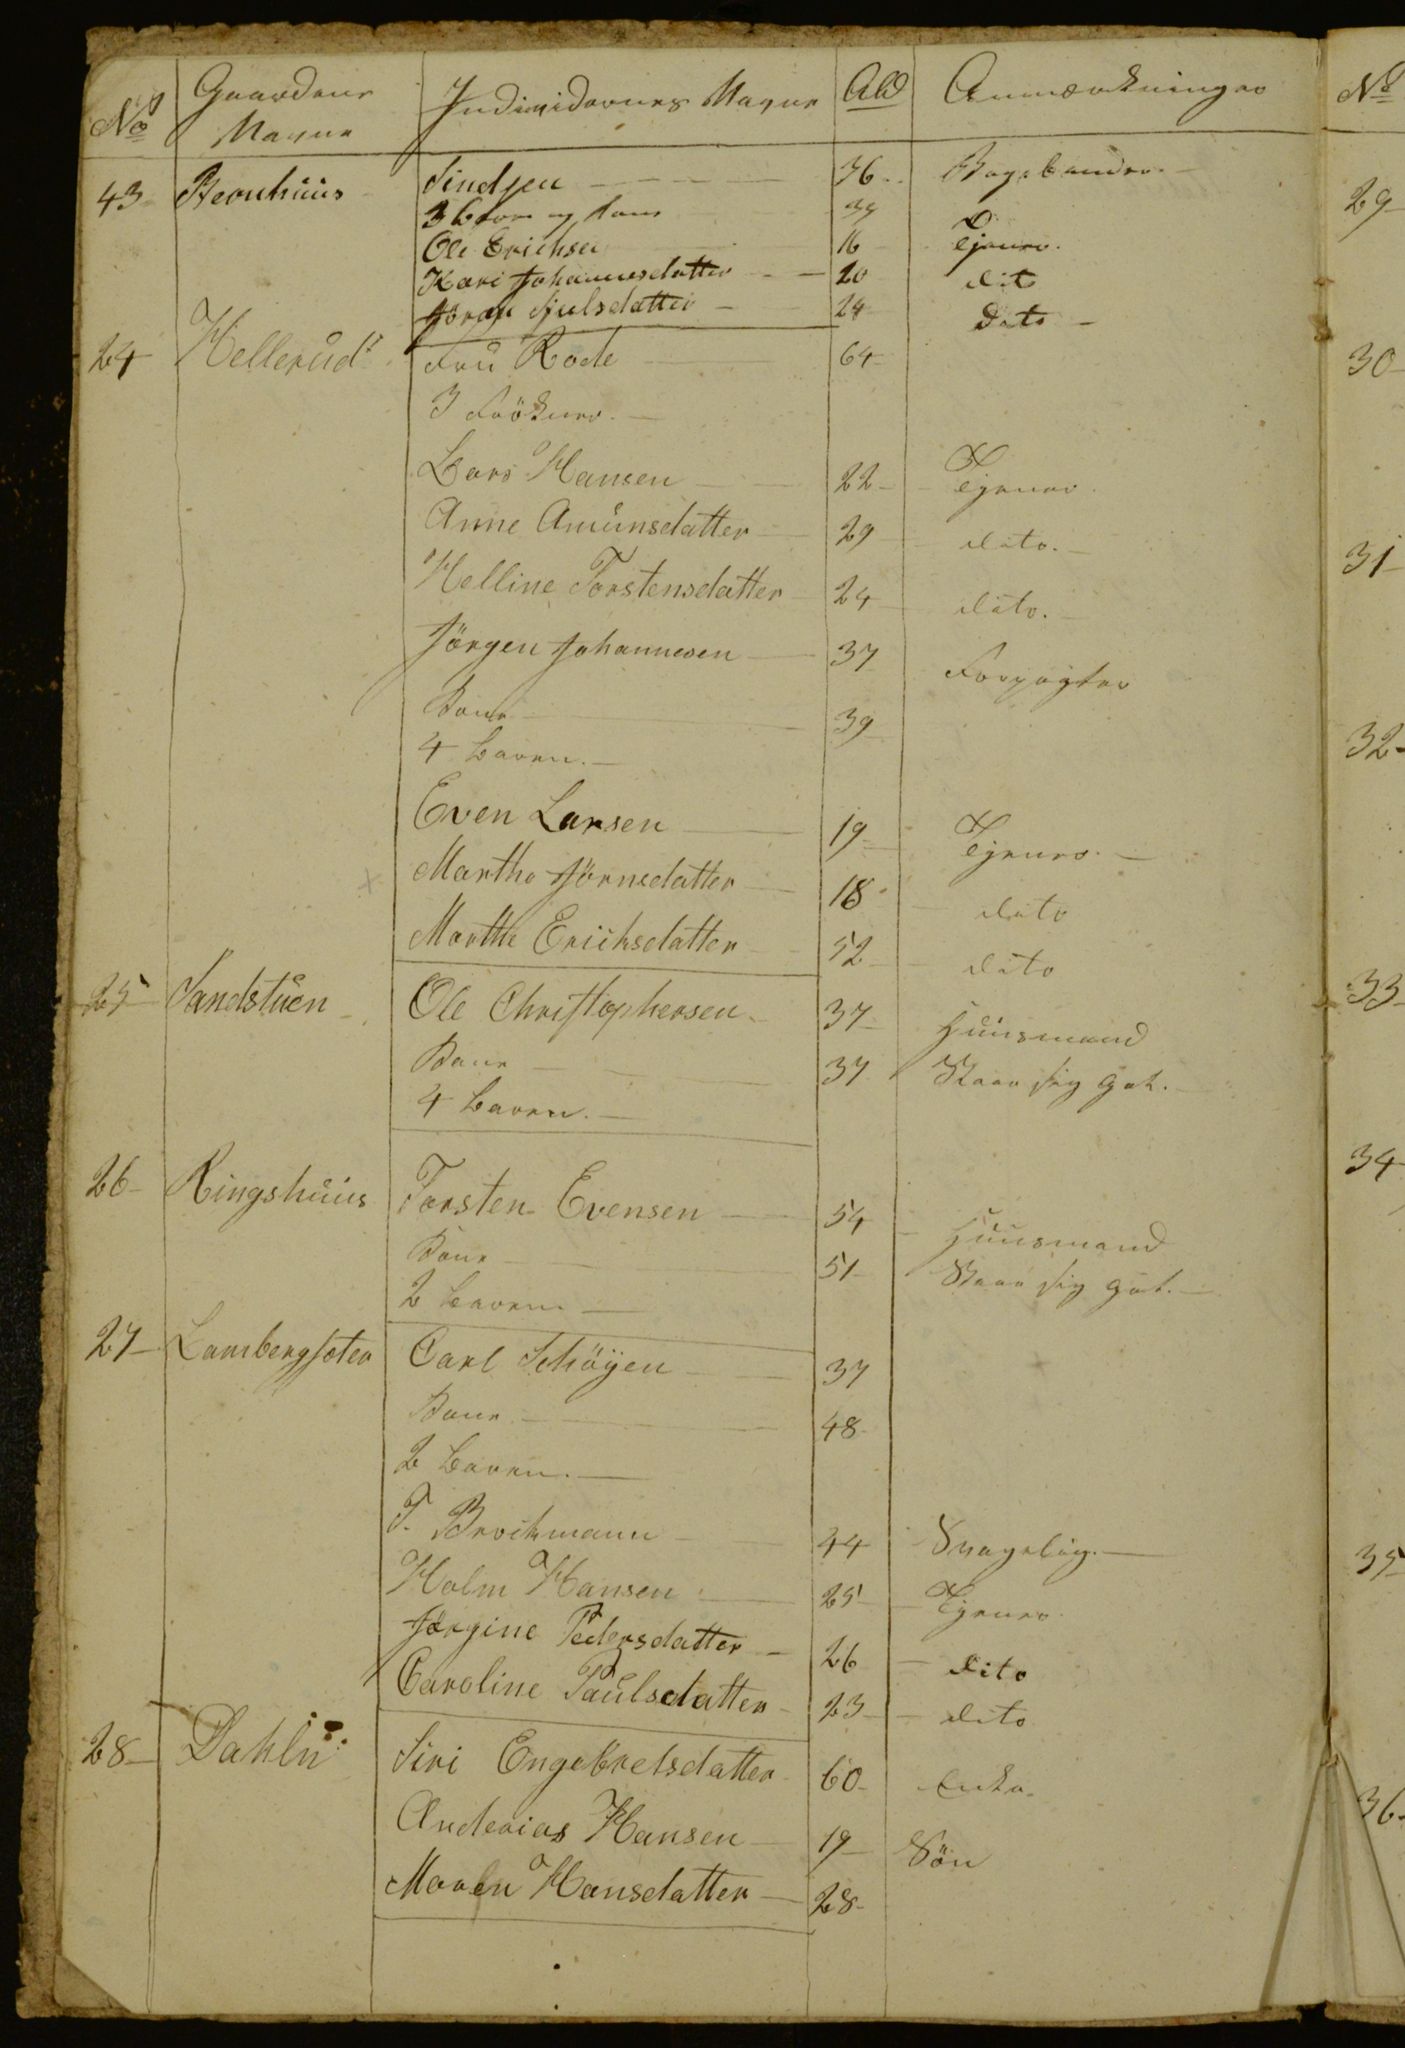 No Gaardens Navne Individernes Navne Ald Anmærkninger
43 Steenhuus Sindsen 36 Bogebinder
3 børn og kone 39
Ole Erichsen 16 Tjener
Kari Johannesdatter 20 dito
Jöran Sjulsdatter 24 dito
24 Hellerud Fru Rode 64
3 Frökner
Lars Hansen 22 Tjener
Anne Amunsdatter 29 dito
Helline Torstensdatter 24 dito
Jörgen Johannesen 37 Forpagter
Kone 39
4 Børn
Even Larsen 19 Tjener
Marthe Jörnsdatter 18 dito
Marthe Erichsdatter 52 dito
25 Sandstuen Ole Christophersen 37 Huusmand
Kone 37 Staar sig got.
4 Børn
26 Ringshuus Torsten Evensen 54 Huusmand
Kone 51 Staar sig got.
2 Børn
27 Lambergsæter Carl Schöyen 37
Kone 48
2 Børn
T. Brochmann 44 Svagelig
Holm Hansen 25 Tjener
Jørgine Pedersdatter 26 dito
Caroline Paulsdatter 23 dito
28 Dahln Siri Engebretsdatter 60 Enke
Anderias Hansen 19 Sön
Maren Hansdatter 28
No
29
30
31
32
33
34
35
36